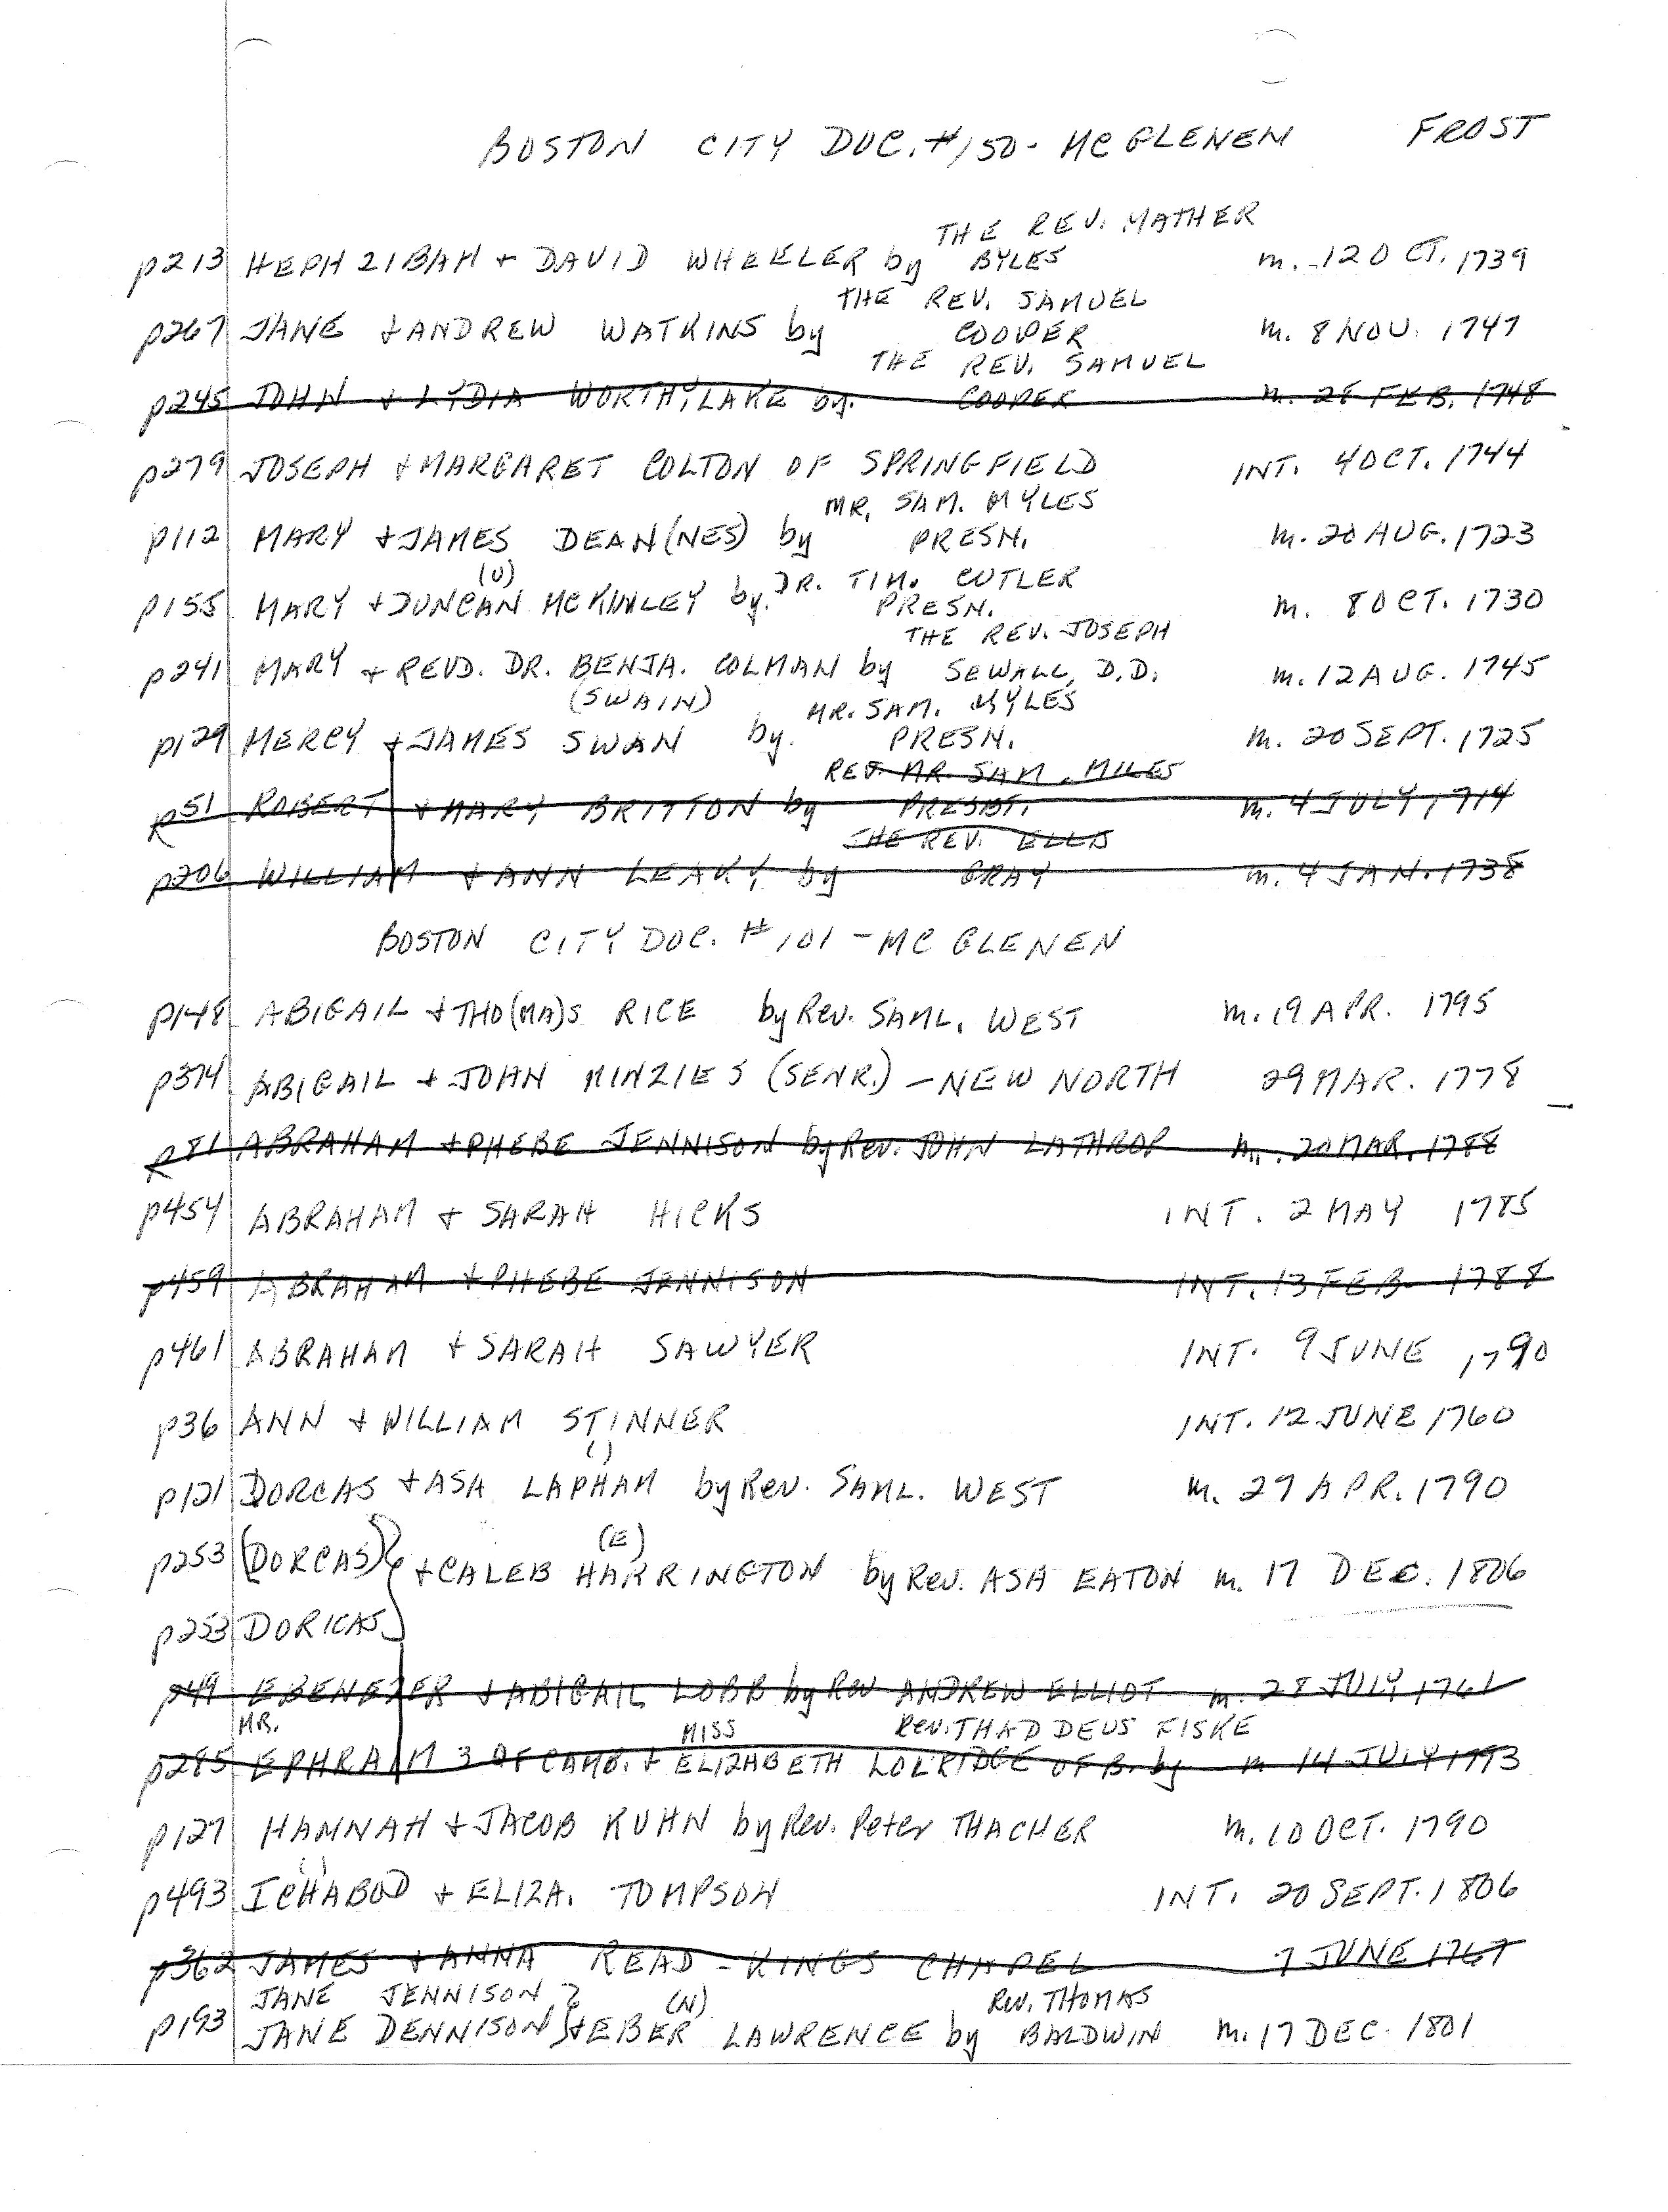 BOSTON CITY DOC. #150 - MC GLENEN FROST
THE REV. MATHER
p213 HEPHZIBAH + DAVID WHEELER by BYLES m. 12 OCT. 1739
THE REV. SAMUEL
p267 JANE + ANDREW WATKINS by COOPER m. 8 NOV. 1747
THE REV. SAMUEL
p245 JOHN + LYDIA WORTHYLAKE by. COOPER m. 28 FEB. 1748
p279 JOSEPH + MARGARET COLTON OF SPRINGFIELD INT. 4 OCT. 1744
MR. SAM. MYLES
p112 MARY + JAMES DEAN(NES) by PRESN. m. 20 AUG. 1723
(U) DR. TIM. CUTLER
p155 MARY + DUNCAN MCKINLEY by. PRESN. m. 8 OCT. 1730
THE REV. JOSEPH
p241 MARY + REVD. DR. BENJA. COLMAN by SEWALL, D.D. m. 12 AUG. 1745
(SWAIN) MR. SAM. MYLES
p129 MERCY + JAMES SWAN by. PRESN. m. 20 SEPT. 1725
REV. MR. SAM. MILES
p51 ROBERT + MARY BRITTON by PRESBT. m. 4 JULY, 1714
THE REV. ELLIS
p206 WILLIAM + ANN LEAKY by GRAY m. 4 JAN. 1738
BOSTON CITY DOC. #101 - MC GLENEN
p148 ABIGAIL + THO(MA)S RICE by Rev. SAML. WEST m. 19 APR. 1795
p374 ABIGAIL + JOHN MINZIES (SENR.) - NEW NORTH 29 MAR. 1778
p81 ABRAHAM + PHEBE JENNISON by Rev. JOHN LATHROP m. 20 MAR. 1788
p454 ABRAHAM + SARAH HICKS INT. 2 MAY 1785
p459 ABRAHAM + PHEBE JENNISON INT. 13 FEB 1788
p461 ABRAHAM + SARAH SAWYER INT. 9 JUNE 1790
p36 ANN + WILLIAM STINNER INT. 12 JUNE 1760
( )
p121 DORCAS + ASA LAPHAM by Rev. SAML. WEST m. 27 APR. 1790
(E)
p253 (DORCAS) + CALEB HARRINGTON by Rev. ASA EATON m. 17 DEC. 1806
p253 DORICAS
p49 EBENEZER + ABIGAIL LOBB by Rev ANDREW ELLIOT m. 28 JULY 1761
MR. MISS Rev. THADDEUS FISKE
p285 EPHRAIM 3 OF CAMB. + ELIZABETH LOLRIDGE OF B. by m 14 JULY 1793
p127 HANNAH + JACOB KUHN by Rev. Peter THACHER m. 10 OCT. 1790
( )
p493 ICHABOD + ELIZA. TOMPSON INT. 20 SEPT. 1806
p362 JAMES + ANNA READ - KINGS CHAPEL 7 JUNE 1767
JANE JENNISON } (N) Rev. THOMAS
p193 JANE DENNISON } + EBER LAWRENCE by BALDWIN m. 17 DEC. 1801